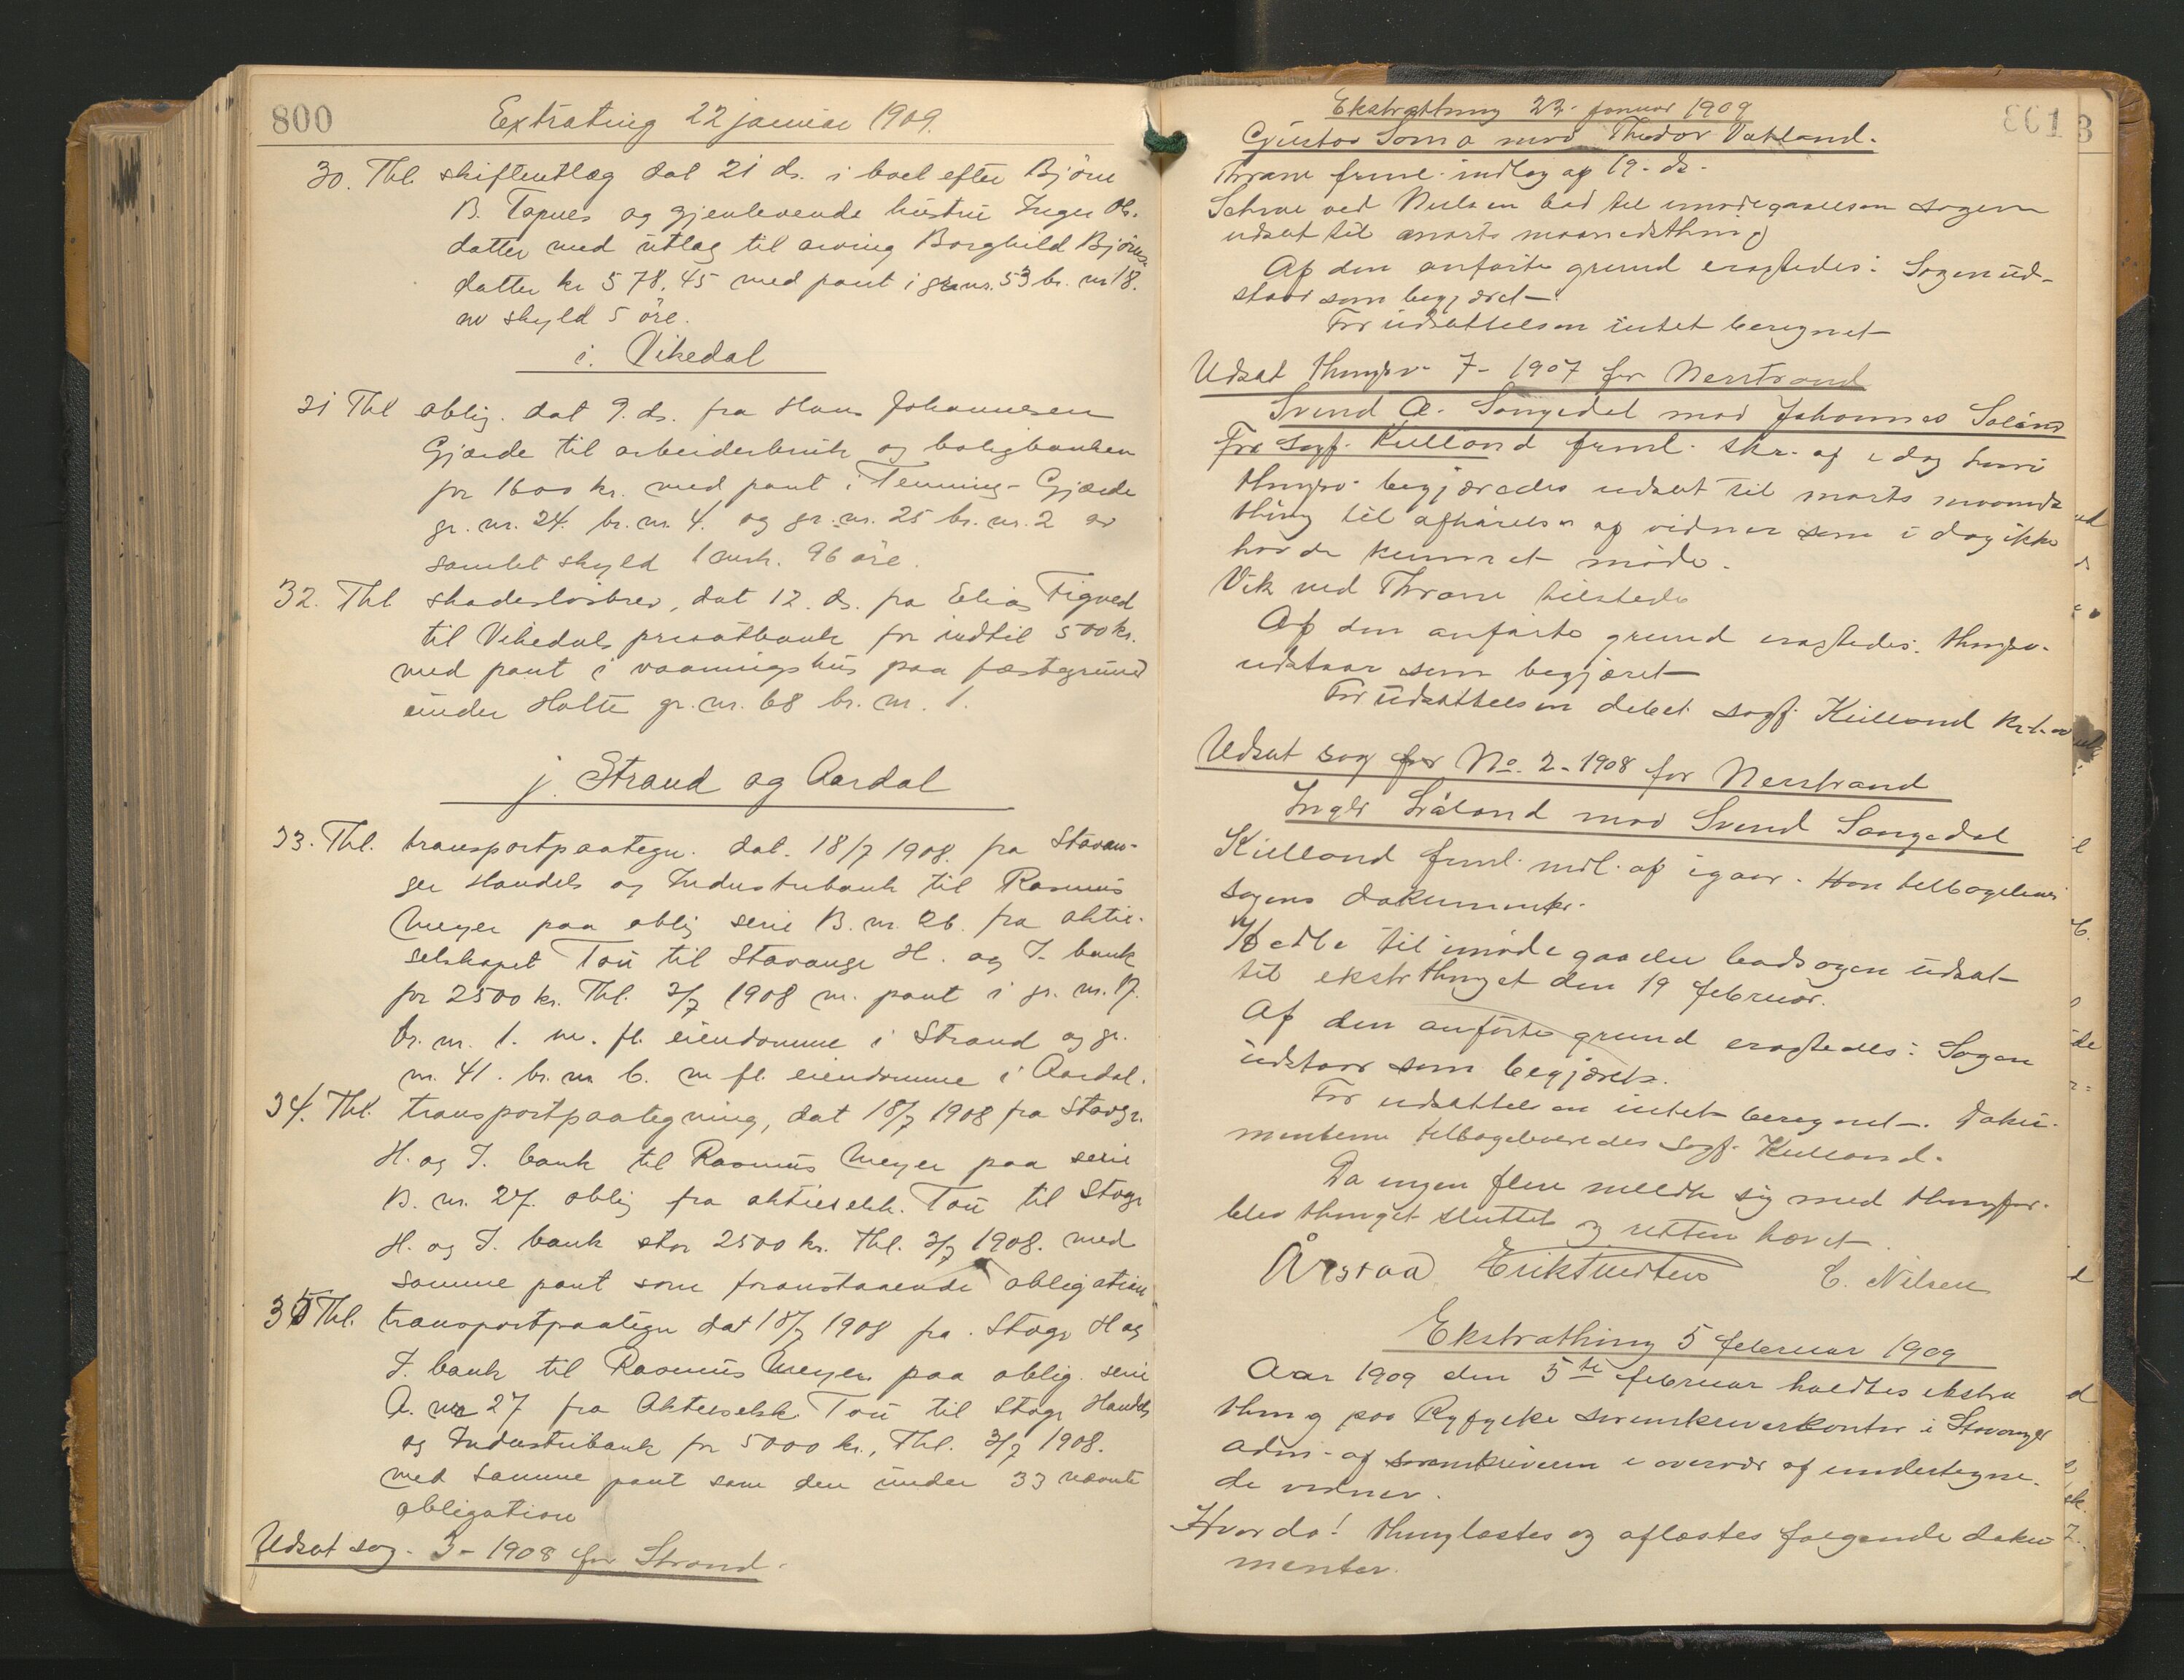 800
Extrating 22 januar 1909.
30. Thl. skifteutlæg dat 21 ds. i boet efter Björn
B. Tapnes og gjenlevende hustru Inger Ols.
datter med utlæg til arving Borghild Björns
datter kr 578.45 med pant i gr.nr. 53 br. nr 18.
av skyld 5 öre.
i. Vikedal
31 Thl oblig. dat 9. ds. fra Hans Johannesen
Gjærde til arbeiderbruk og boligbanken
for 1600 kr. med pant i Tenning - Gjærde
gr. nr. 24. br. nr. 4. og gr. nr. 25 br. nr. 2 av
samlet skyld 1 mrk. 96 öre.
32. Thl skadeslösbrev, dat 12. ds. fra Elias Tigved
til Vikedals privatbank for indtil 500 kr.
med pant i vaaningshus paa fæstegrund
under Holte gr. nr. 68 br. nr. 1.
j. Strand og Aardal
33. Thl. transportpaategn. dat. 18/7 1908. fra Stavan-
ger Handels og Industribank til Rasmus
Meyer paa oblig serie B. nr. 26. fra aktie-
selskapet Tou til Stavanger H. og I. bank
for 2500 kr. Thl. 3/7 1908 m. pant i gr. nr. 17.
br. nr. 1. m. fl. eiendomme i Strand og gr.
nr. 41. br. nr 6. m fl. eiendomme i Aardal.
34. Thl. transportpaategning, dat 18/7 1908 fra Stavgr.
H. og I. bank til Rasmus Meyer paa serie
B. nr. 27. oblig fra aktieselsk. Tou til Stvgr
H. og I. bank stor 2500 kr. Thl. 3/7 1908. med
samme pant som foranstaaende obligation
35 Thl. transportpaategn dat 18/7 1908 fra Stvgr H og
I. bank til Rasmus Meyer paa oblig. serie
A. nr 27 fra Aktieselsk. Tou til Stvgr Handels
og Industribank for 5000 kr., Thl. 3/7 1908.
med samme pant som den under 33 nævnte
obligation
Udsat sag. 3 - 1908 for Strand.
Ekstrathing 22. januar 1909
801
Gustav Soma mod Theodor Vatland.
Thrane freml. indlæg af 19. ds.
Schroe ved Nielsen bad til imødegaaelsen sagen
udsat til marts maanedsthing
Af den anførte grund eragtedes: Sagen ud-
staar som begjæret
For udsættelsen intet beregnet
Udsat thingsv. 7 - 1907 for Nerstrand
Svend A. Sangedal mod Johannes Soland
For sagf. Kielland freml. skr. af idag hvori
thingsv. begjæredes udsat til marts maaneds
thing til afhørelse af vidner som i dag ikke
havde kunnet møde.
Vik ved Thrane tilstede
Af den anførte grund eragtedes: thingsv.
udstaar som begjæret
For udsættelsen debet sagf. Kielland
Udsat sag for No. 2 - 1908 for Nerstrand
mod Svend Sangedal
Kielland freml. indl. af igaar. Han tilbageleverede
sagens dokumenter.
til imødegaaelse bad sagen udsat
til ekstrthinget den 19 februar.
Af den anførte grund eragtedes: Sagen
udstaar som begjæret.
For udsættelsen intet beregnet. Doku-
menterne tilbageleveredes sagf. Kielland.
Da ingen flere meldte sig med thingfor.
blev thinget sluttet og retten hævet.
Årstad
C. Nilsen
Ekstrathing 5 februar 1909
Aar 1909 den 5te februar holdtes ekstra
thing paa Ryfylke sorenskriverkontor i Stavanger
adm. af sorenskriveren i overvær af undertegne-
de vidner.
Hvorda! thinglæstes og aflæstes følgende doku
menter.